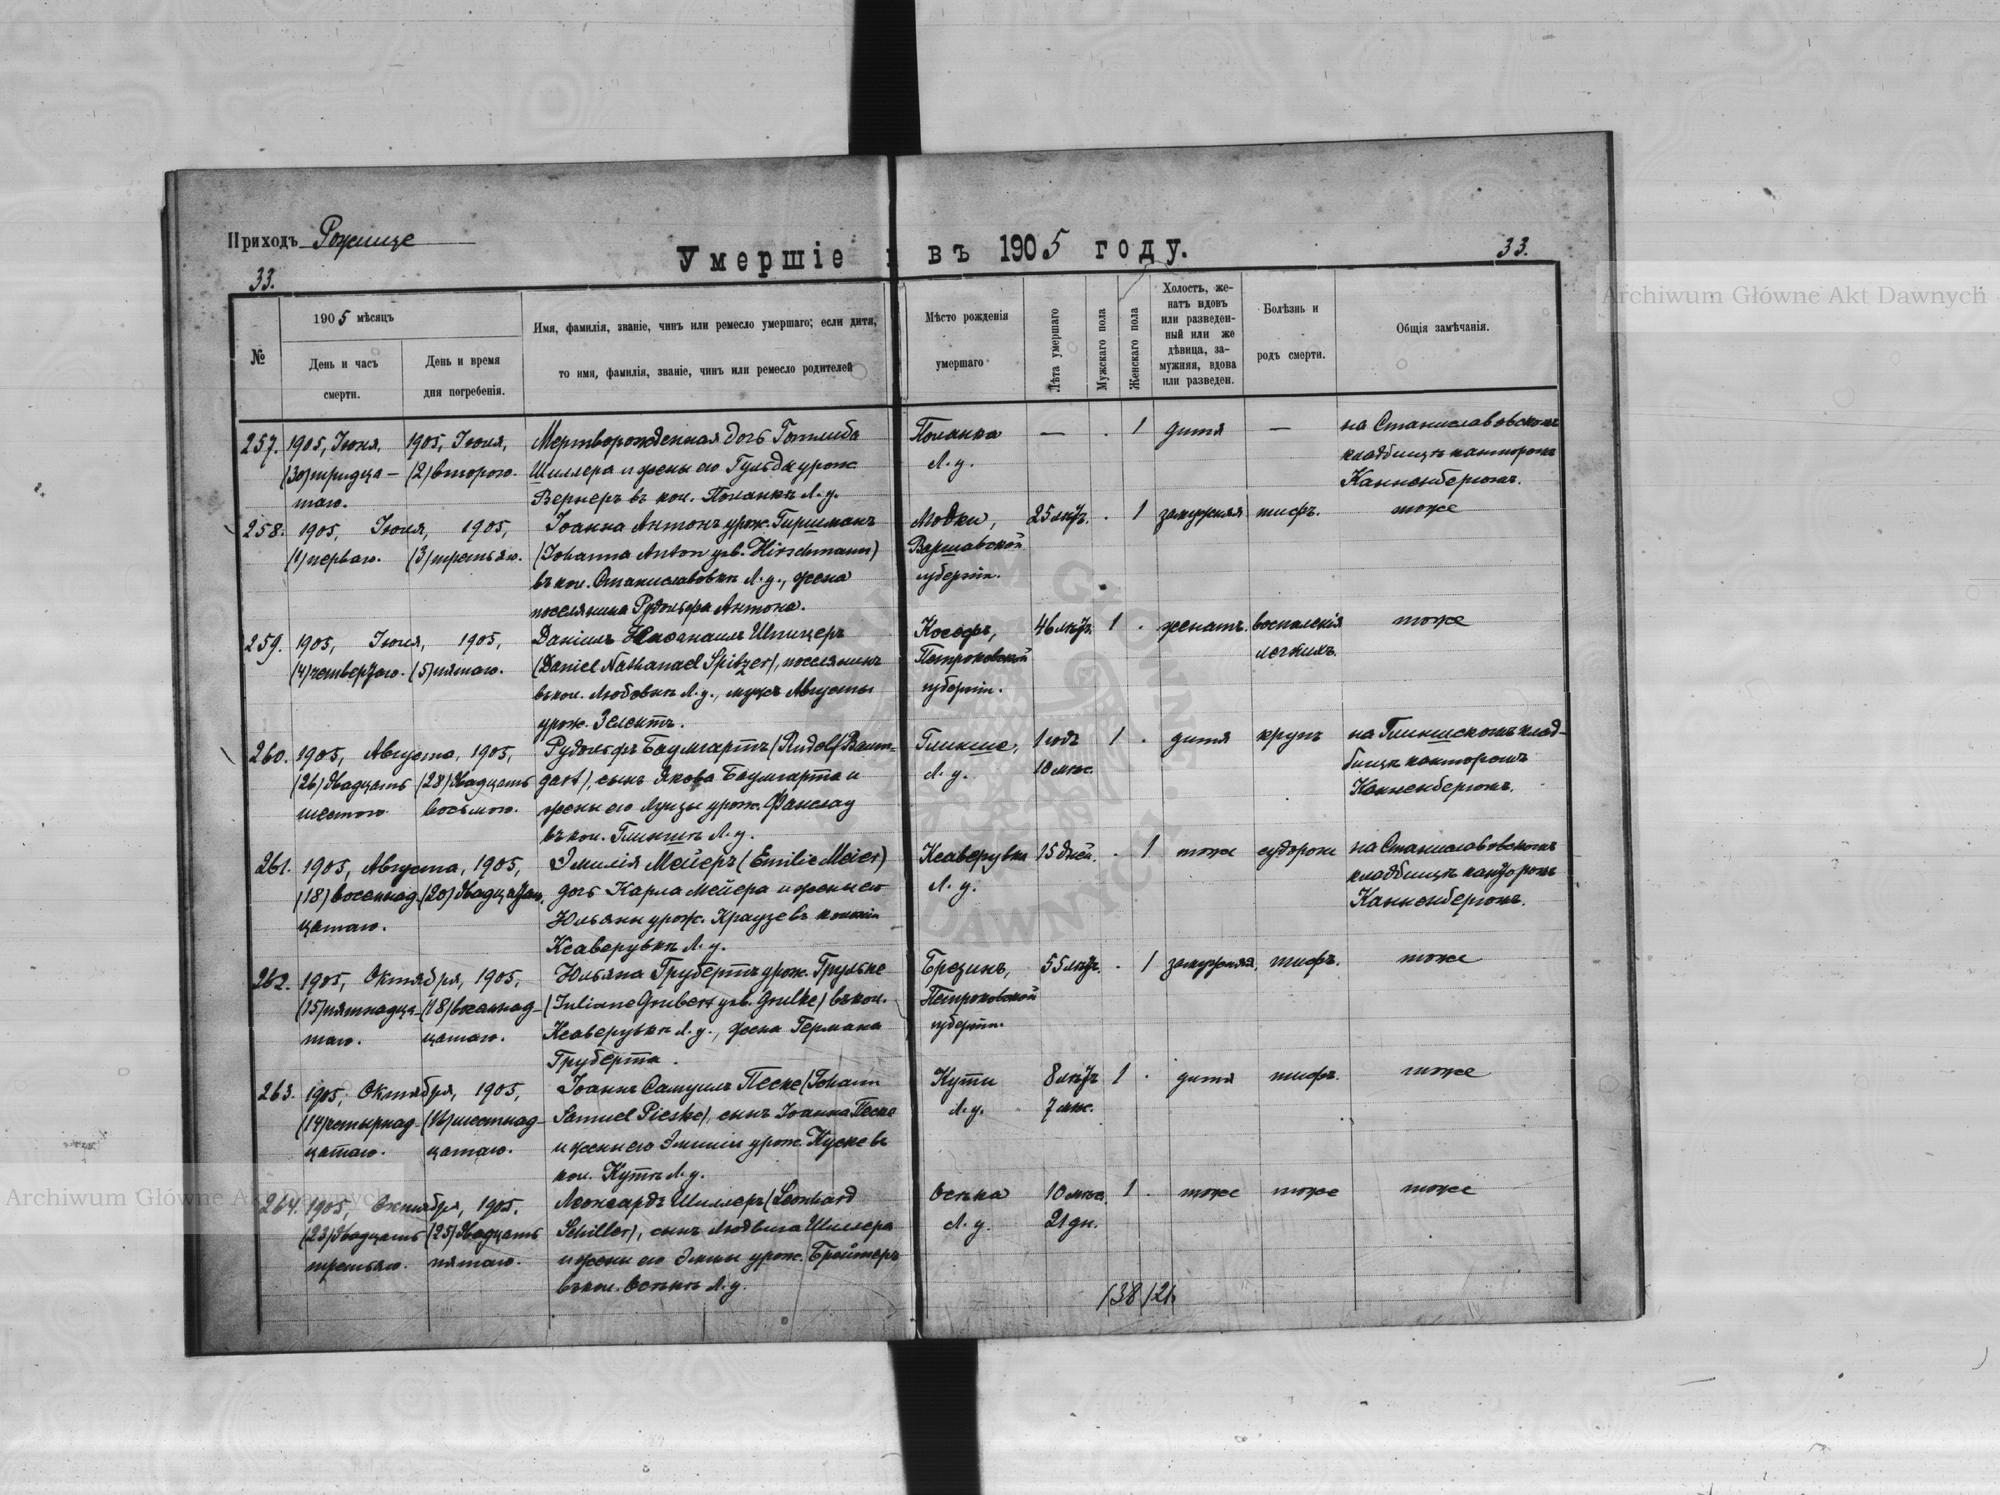 Приходъ Рожище
Умершіе въ 1905 году.
33.
33.
№
1905 мѣсяцъ
День и часъ
смерти.
День и время
дня погребенія.
Имя, фамилія, званіе, чинъ или ремесло умершаго; если дитя,
то имя, фамилія, званіе, чинъ или ремесло родителей
Мѣсто рожденія
умершаго
Лѣта умершаго
Мужскаго пола
Женскаго пола
Холостъ, же-
натъ вдовъ
или разведен-
ный или же
дѣвица, за-
мужняя, вдова
или разведен.
Болѣзнь и
родъ смерти.
Общія замѣчанія.
257. 1905, Іюня, 1905, Іюля, Мертворожденная дочь Готлиба Поланка — . 1 дитя — на Станиславовскомъ
(30) тридца- (2) второго. Шиллера и жены его Гульды урож. Л. у. кладбищѣ канторомъ
таго. Вернеръ въ кол. Поланкѣ Л. у. Канненбергомъ.
258. 1905, Іюля, 1905, Іоанна Антонъ урож. Гиршманъ Модки, 25 лѣтъ. . 1 замужняя тифъ. тоже
(1) перваго. (3) третьяго. (Johanna Anton geb. Hirschmann) Варшавской
въ кол. Станиславовкѣ Л. у., жена губерніи.
поселянина Рудольфа Антона.
259. 1905, Іюля, 1905, Даніилъ Нафанаилъ Шпицеръ 46 лѣтъ 1 . женатъ. воспаленія тоже
(4) четвертаго. (5) пятаго. (Daniel Nathanael Spitzer), поселянинъ Петроковской легкихъ.
въ кол. Любовкѣ Л. у., мужъ Августы губерніи.
урож. Зелентъ.
260. 1905, Августа, 1905, Рудольфъ Баумгартъ (Rudolf Baum- Глинище, 1 годъ 1 . дитя крупъ на Глинищскомъ клад-
(26) двадцать (28) двадцать gart), сынъ Якова Баумгарта и Л. у. 10 мѣс. бищѣ канторомъ
шестого восьмого. жены его Луизы урож. Фанслау Канненбергомъ.
въ кол. Глинищѣ Л. у.
261. 1905, Августа, 1905, Эмилія Мейеръ (Emilie Meier) Ксаверувка 15 дней. . 1 тоже судороги на Станиславовскомъ
(18) восемнад- (20) двадцатаго. дочь Карла Мейера и жены его Л. у. кладбищѣ канторомъ
цатаго. Юльяны урож. Краузе въ колоніи Канненбергомъ.
Ксаверувкѣ Л. у.
262. 1905, Октября, 1905, Юльяна Грубертъ урож. Грульке Брезинъ, 55 лѣтъ. . 1 замужняя, тифъ. тоже
(15) пятнадца- (18) восемнад- (Juliane Grubert geb. Grulke) въ кол. Петроковской
таго. цатаго. Ксаверувкѣ Л. у., жена Германа губерніи.
Груберта.
263. 1905, Октября, 1905, Іоаннъ Самуилъ Песке (Johann Кути 8 лѣтъ 1 . дитя тифъ. тоже
(14) четырнад- (16) шестнад- Samuel Pieske), сынъ Іоанна Песке Л. у. 7 мѣс.
цатаго. цатаго. и жены его Эмиліи урож. Куске въ
кол. Кутѣ Л. у.
264. 1905, Октября, 1905. Леонгардъ Шиллеръ (Leonhard Осѣка 10 мѣс. 1 . тоже тоже тоже
(23) двадцать (25) двадцать Schiller), сынъ Людвига Шиллера Л. у. 21 дн.
третьяго. пятаго. и жены его Эммы урож. Бреймеръ
въ кол. Осѣкѣ Л. у.
Archiwum Główne Akt Dawnych
Archiwum Główne Akt Dawnych